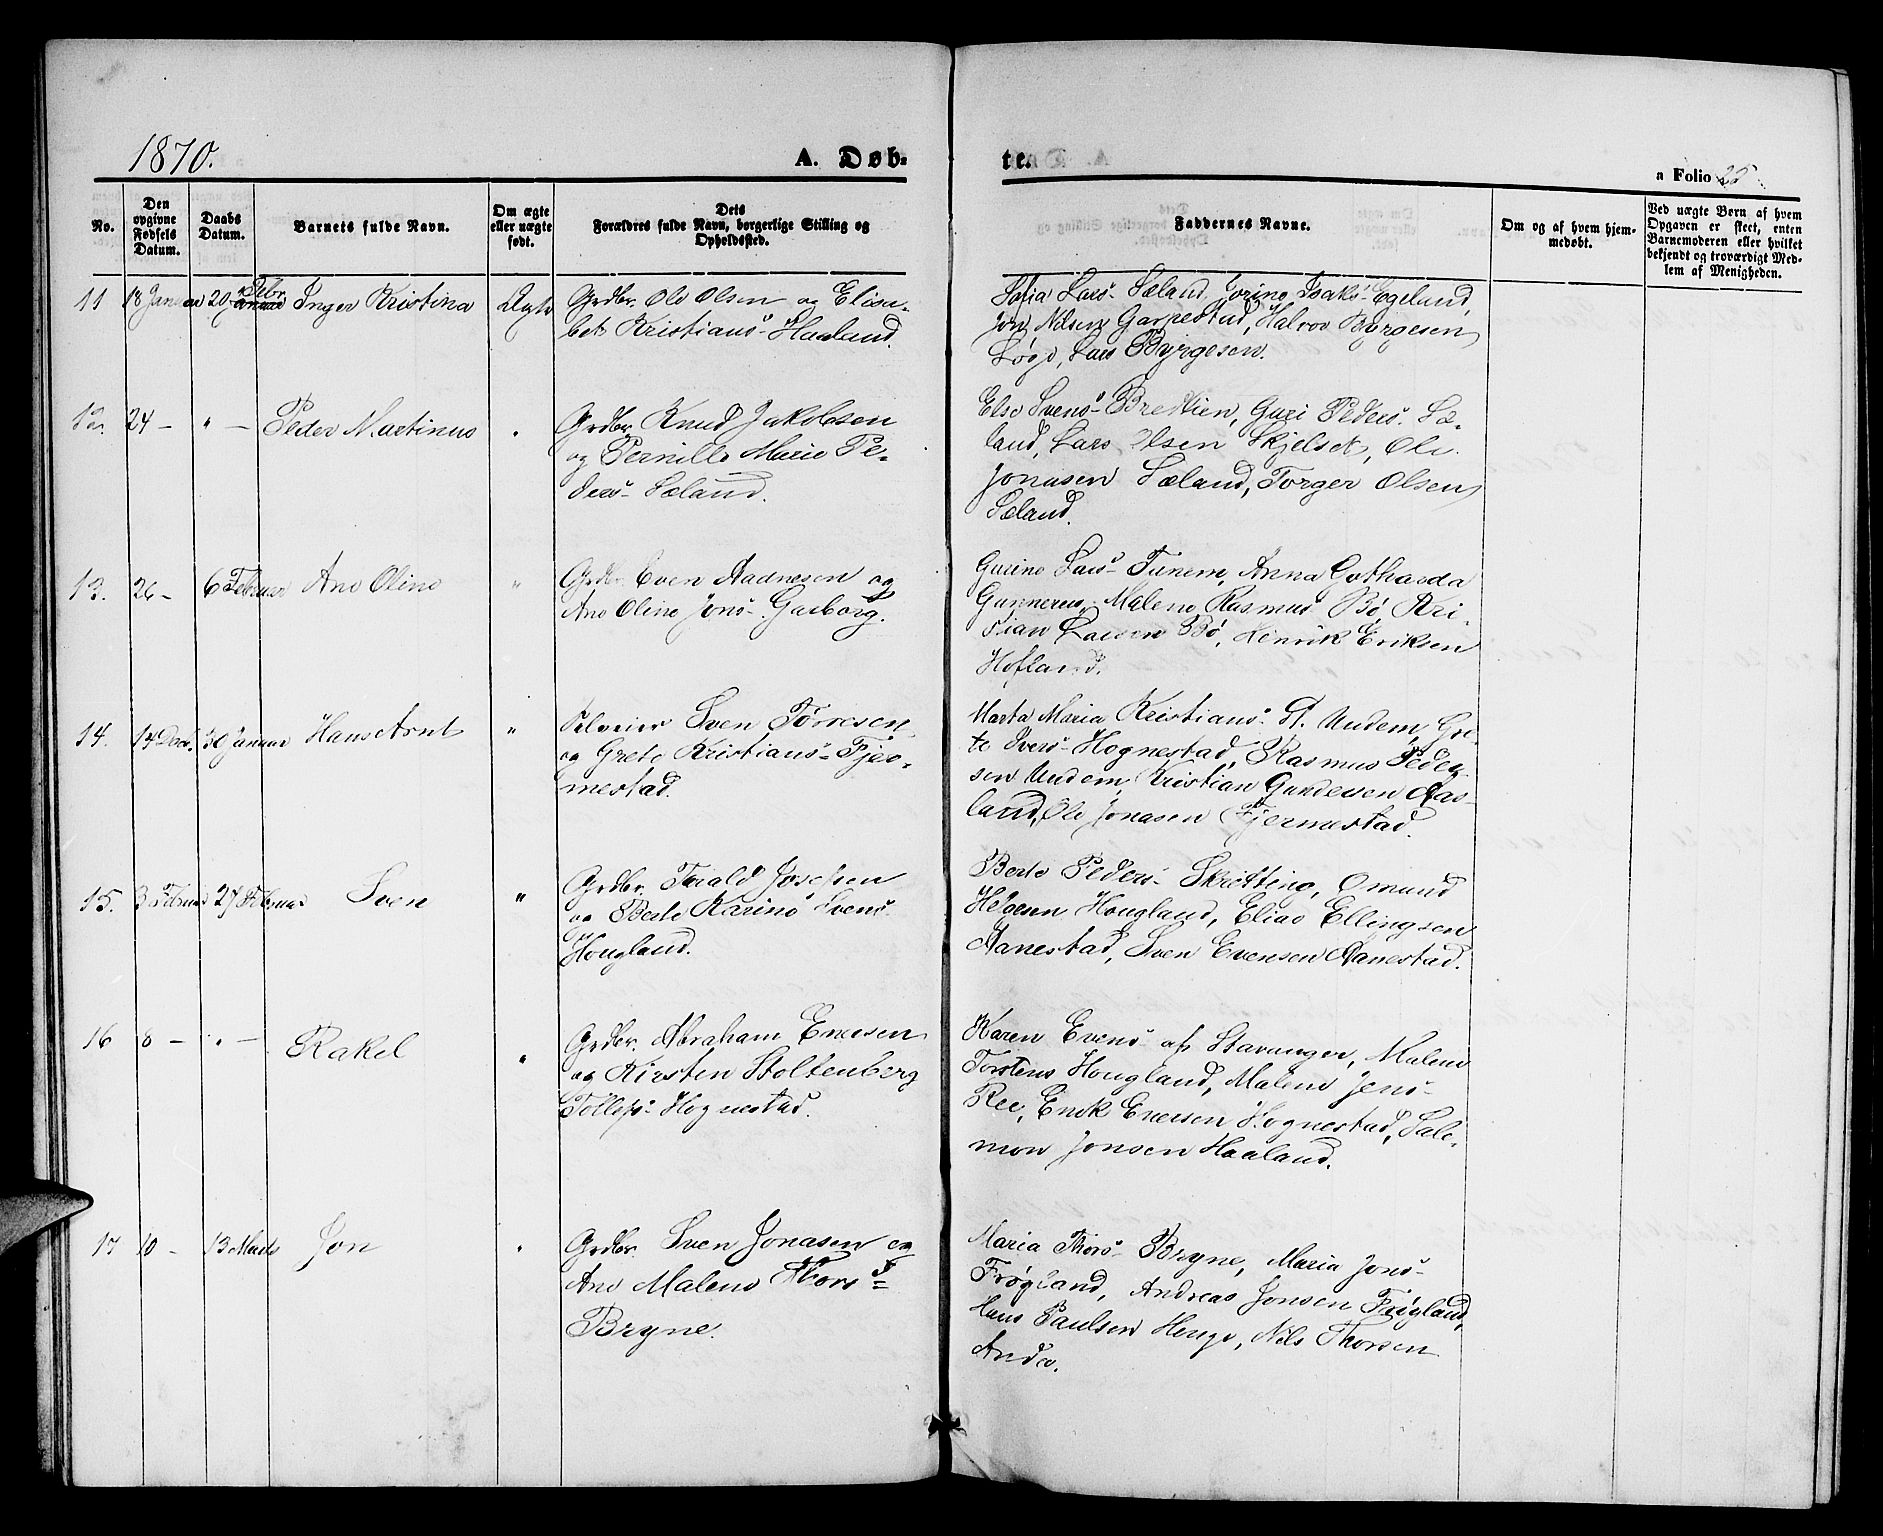 1870.
A. Døb-
te.
a Folio 25
No.
Den opgivne Fødsels Datum.
Daabs Datum.
Barnets fulde Navn.
Om ægte eller uægte født.
Dets Forældres fulde Navn, borgerlige Stilling og Opholdssted.
Faddernes Navne.
Om og af hvem hjemmedøbt.
Ved uægte Børn af hvem Opgaven er skeet, enten Barnemoderen eller hvilket bekjendt og troværdigt Medlem af Menigheden.
11 18 Januar 20 Februar Inger Kristina Ægte
Grdbr. Ole Olsen og Elisa-
bet Kristians- Haaland.
Sofia Lars- Sæland, Isaks- Egeland,
Jon Nilsen Garpestad, Halvor Byrgesen
Lars Byrgesen.
12. 24 - " - Peder Martinus "
Grdbr. Knud Jakobsen
og Pernille Marie Pe-
ders- Sæland.
Else Svens- Brekken, Guri Peders- Sæ-
land, Lars Olsen Skjelset, Ole
Jonasen Sæland, Torger Olsen
Sæland.
13. 26 - 6 Februar Ane Oline "
Grdbr. Even Aadnesen og
Ane Oline Jons- Garborg.
Gurine Lars- Tunem, Anna Gotharda
Gunnerus, Malene Rasmus- Bø, Kri-
stian Larsen Bø, Henrik Eriksen
Hofland.
14. 14 Decb. 30 Januar Hans Arnt "
Selveier Sven Tørresen
og Grete Kristians- Fjer-
mestad.
Marta Maria Kristians- St. Undem, Gre-
te Svens- Hognestad, Rasmus Peder-
sen Undem, Kristian Gundersen Aas-
land, Ole Jonasen Fjermestad.
15. 3 Februar 27 Februar Sven "
Grdbr. Tarald Josefsen
og Berte Karine Svens-
Hougland.
Berte Peders- Skretting, Omund
Helgesen Hougland, Elias Ellingsen
Aanestad, Sven Evensen Aanestad.
16 8 - " - Rakel "
Grdbr. Abraham Enersen
og Kirsten Stoltenberg
Tollefs- Hognestad.
Karen Evens- af Stavanger, Malene
Torstens- Hougland, Malene Jens-
Ree, Enok Enersen Hognestad, Salo-
mon Jonsen Haaland.
17 10 - 13 Marts Jon "
Grdbr. Sven Jonasen og
Ane Malene Thors-
Bryne.
Maria Thors- Bryne, Maria Jons-
Frøyland, Andreas Jonsen Frøyland,
Hans Paulsen Hauge, Nils Thorsen
Anda.